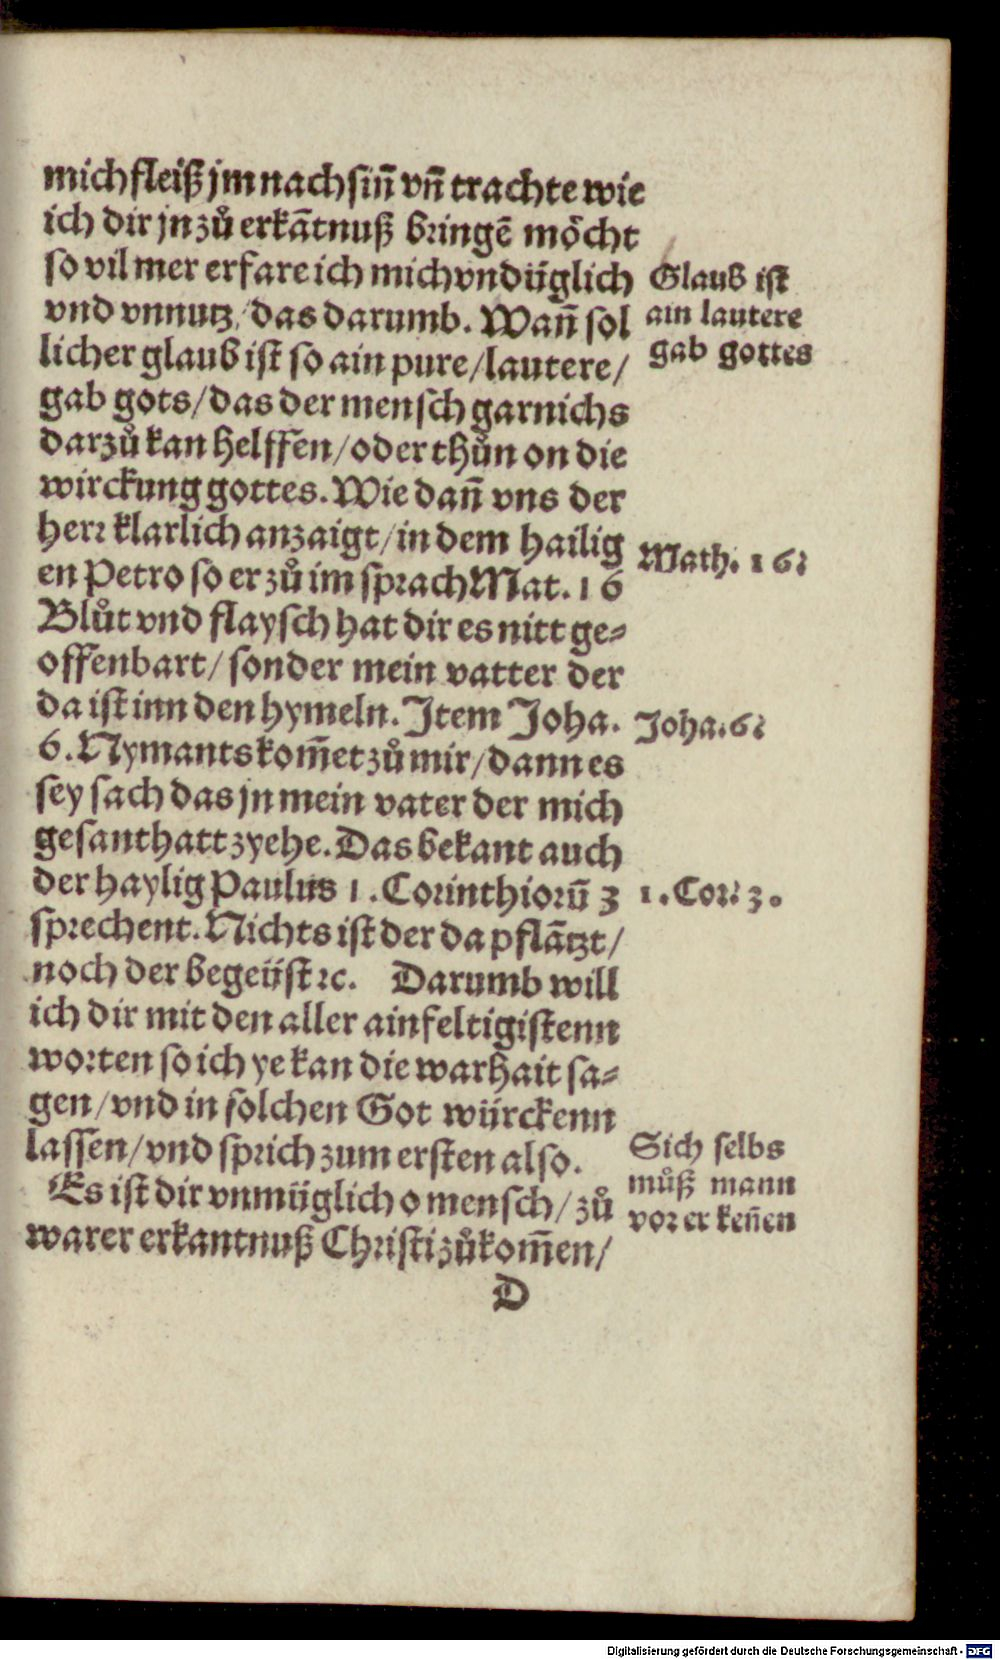 mich fleiß jm nach siñ vñ trachte wie
ich dir jn zů erkãtnuß bringẽ möcht
so vil mer erfare ich mich vndüglich
vnd vnnutz/das darumb. Wañ sol
licher glaub ist so ain pure/lautere/
gab gots/das der mensch garnichs
darzů kan helffen/oder thůn on die
wirckung gottes. Wie dañ vns der
herr klarlich anzaigt/in dem hailig
en Petro so er zů im sprach Mat. 16
Blůt vnd flaysch hat dir es nitt ge⸗
offenbart/sonder mein vatter der
da ist inn den hymeln. Item Joha.
6. Nymants kom̃et zů mir/dann es
sey sach das jn mein vater der mich
gesant hatt zyehe. Das bekant auch
der haylig Paulus 1. Corinthiorũ 3
sprechent. Nichts ist der da pflãtzt/
noch der begeüst ꝛc. Darumb will
ich dir mit den aller ainfeltigistenn
worten so ich ye kan die warhait sa⸗
gen/vnd in solchen Got würckenn
lassen/vnd sprich zum ersten also.
Es ist dir vnmüglich o mensch/zů
warer erkantnuß Christi zůkom̃en/
D
Glaub ist
ain lautere
gab gottes
Math. 16.
Joha. 6.
1. Cor. 3.
Sich selbs
můß mann
vor erkeñen
Digitalisierung gefördert durch die Deutsche Forschungsgemeinschaft - DFG